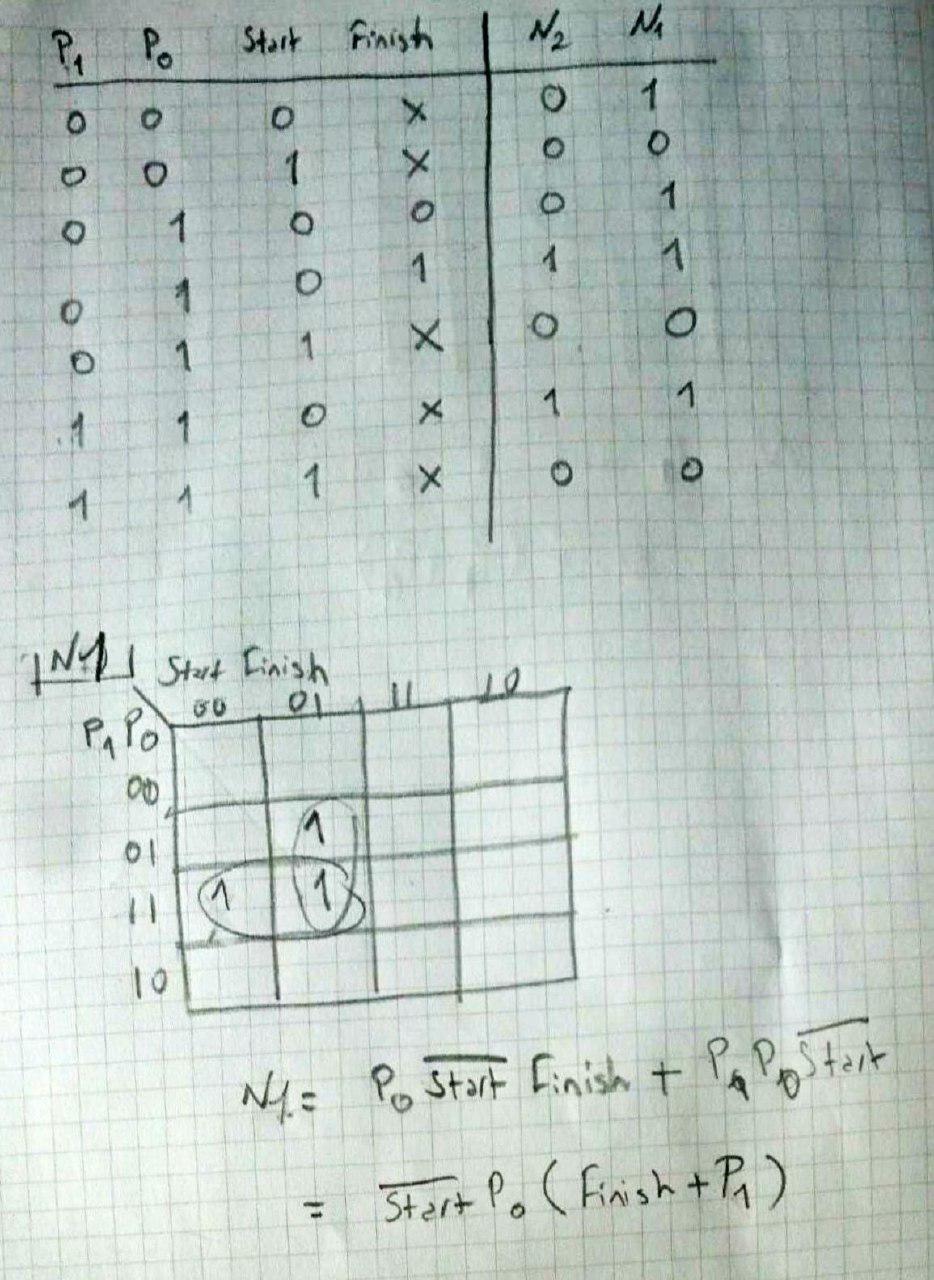 P₁ P₀ Start Finish N₂ N₁
0 0 0 X 0 1
0 0 1 X 0 0
0 1 0 0 0 1
0 1 0 1 1 1
0 1 1 X 0 0
1 1 0 X 1 1
1 1 1 X 0 0
N1 Start Finish
00 01 11 10
P₁ P₀
00
01 1
11 1 1
10
N1 = P₀ S̅t̅a̅r̅t̅ Finish + P₁ P₀ S̅t̅a̅r̅t̅
= S̅t̅a̅r̅t̅ P₀ (Finish + P₁)